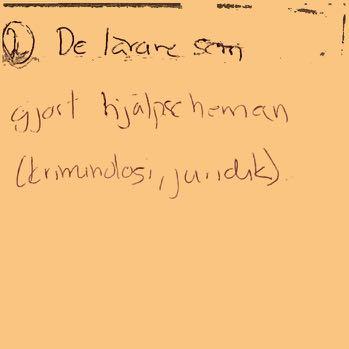 ② De lärare som
gjort hjälpscheman
(kriminologi, juridik).